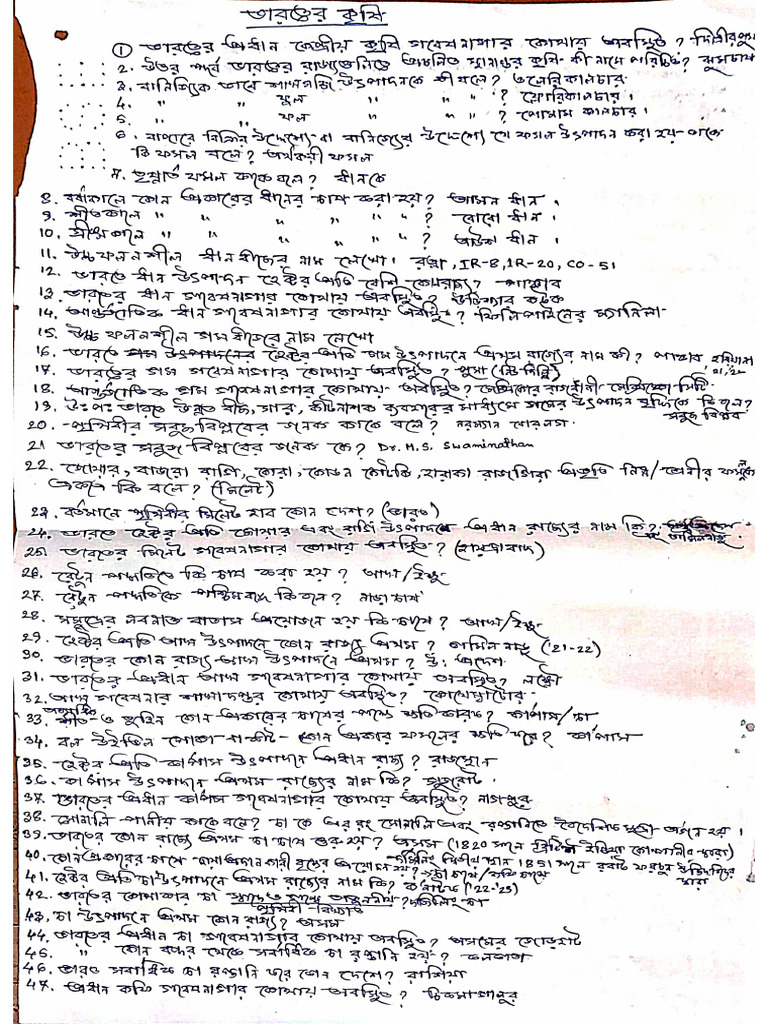 ভারতের কৃষি
① ভারতের প্রধান কেন্দ্রীয় কৃষি গবেষণাগার কোথায় অবস্থিত?
2. উত্তর পূর্ব ভারতের রাজ্যগুলিতে প্রচলিত স্থানান্তর কৃষি কী নামে পরিচিত? ঝুমচাষ
3. বানিজ্যিক ভাবে শাকসব্জি উৎপাদনকে কী বলে? ওলেরিকালচার
4. " ফুল " " " ? ফ্লোরিকালচার।
5. " ফল " " " ? পোমাম কালচার।
6. বাজারে বিক্রির উদ্দেশ্যে বা বানিজ্যের উদ্দেশ্যে যে ফসল উৎপাদন করা হয় তাকে
কি ফসল বলে? অর্থকরী ফসল
7. তৃষ্ণার্ত ফসল কাকে বলে? ধানকে
8. বর্ষাকালে কোন প্রকারের ধানের চাষ করা হয়? আমন ধান।
9. শীতকালে " " " " " ? বোরো ধান।
10. গ্রীষ্মকালে " " " " " ? আউশ ধান।
11. উচ্চ ফলনশীল ধানবীজের নাম লেখো। রত্না, IR-8, IR-20, CO-51
12. ভারতে ধান উৎপাদন হেক্টর প্রতি বেশি কোনরাজ্য? পাঞ্জাব
13. ভারতের ধান গবেষণাগার কোথায় অবস্থিত? উড়িষ্যার কটক
14. আন্তর্জাতিক ধান গবেষণাগার কোথায় অবস্থিত? ফিলিপাইনের ম্যানিলা
15. উচ্চ ফলনশীল গমবীজের নাম লেখো
16. ভারতে গম উৎপাদনের হেক্টর প্রতি গম উৎপাদনে প্রথম রাজ্যের নাম কী? পাঞ্জাব হরিয়ানা
21/22
17. ভারতের গম গবেষণাগার কোথায় অবস্থিত? পুষা (নিউদিল্লি)
18. আন্তর্জাতিক গম গবেষণাগার কোথায় অবস্থিত? মেক্সিকোর রাজধানী মেক্সিকো সিটি
19. উঃ পঃ ভারতে উন্নত বীজ, সার, কীটনাশক ব্যবহারের মাধ্যমে গমের উৎপাদন বৃদ্ধিকে কি বলে?
সবুজ বিপ্লব
20. পৃথিবীর সবুজ বিপ্লবের জনক কাকে বলে? নরম্যান বোরলগ।
21 ভারতের সবুজ বিপ্লবের জনক কে? Dr. M.S. Swaminathan
22. জোয়ার, বাজরা রাগি, কোরা, কোডন কোটকি, হারাকা রাজগিরা প্রভৃতি নিম্ন শ্রেণীর ফসলকে
একত্রে কি বলে? (মিলেট)
23. বর্তমানে পৃথিবীর মিলেট হাব কোন দেশ? (ভারত)
24. ভারতে হেক্টর প্রতি জোয়ার এবং রাগি উৎপাদনে প্রধান রাজ্যের নাম কি?
তামিলনাড়ু
25. ভারতের মিলেট গবেষণাগার কোথায় অবস্থিত? (হায়দ্রাবাদ)
26. রেটুন পদ্ধতিতে কি চাষ করা হয়? আখ/ইক্ষু
27. রেটুন পদ্ধতিকে পশ্চিমবঙ্গে কি বলে? নাড়া চাষ
28. সমুদ্রের লবনাক্ত বাতাস প্রয়োজন হয় কি চাষে? আখ/ইক্ষু
29. হেক্টর প্রতি আখ উৎপাদনে কোন রাজ্য প্রথম? তামিল নাড়ু ('21-22)
30. ভারতের কোন রাজ্য আখ উৎপাদনে প্রথম? উঃ প্রদেশ
31. ভারতের প্রধান আখ গবেষণাগার কোথায় অবস্থিত? লক্ষ্ণৌ
32. আখ গবেষনার শাখাদপ্তর কোথায় অবস্থিত? কোয়েম্বাটোর
33. শীত ও তুহিন কোন প্রকারের চাষের পক্ষে ক্ষতিকারক? কার্পাস/চা
34. বল উইভিল পোকা কোন প্রকার ফসলের ক্ষতি করে? কার্পাস
35. হেক্টর প্রতি কার্পাস উৎপাদনে প্রধান রাজ্য? রাজস্থান
36. কার্পাস উৎপাদনে প্রথম রাজ্যের নাম কি? গুজরাট
37. ভারতের প্রধান কার্পাস গবেষণাগার কোথায় অবস্থিত? নাগপুর
38. সোনালি পানীয় কাকে বলে? চা কে এর রং সোনালি এবং রপ্তানিতে বৈদেশিক মুদ্রা অর্জন হয়।
39. ভারতের কোন রাজ্যে প্রথম চা চাষ শুরু হয়? অসম (1820 সালে ইস্টইন্ডিয়া কোম্পানীর দ্বারা)
40. কোন প্রকারের চাষে ছায়া প্রদানকারী বৃক্ষের প্রয়োজন হয়? চা চাষে/কফি চাষে
41. হেক্টর প্রতি চা উৎপাদনে প্রথম রাজ্যের নাম কি? কর্ণাটক ('22-'23)
42. ভারতের কোথাকার চা পৃথিবী বিখ্যাত? দার্জিলিং চা
43. চা উৎপাদনে প্রথম কোন রাজ্য? অসম
44. ভারতের প্রধান চা গবেষণাগার কোথায় অবস্থিত? অসমের জোড়হাট
45. " কোন বন্দর থেকে সর্বাধিক চা রপ্তানি হয়? কলকাতা
46. ভারত সর্বাধিক চা রপ্তানি করে কোন দেশে? রাশিয়া
47. প্রধান কফি গবেষণাগার কোথায় অবস্থিত? চিকমাগালুর